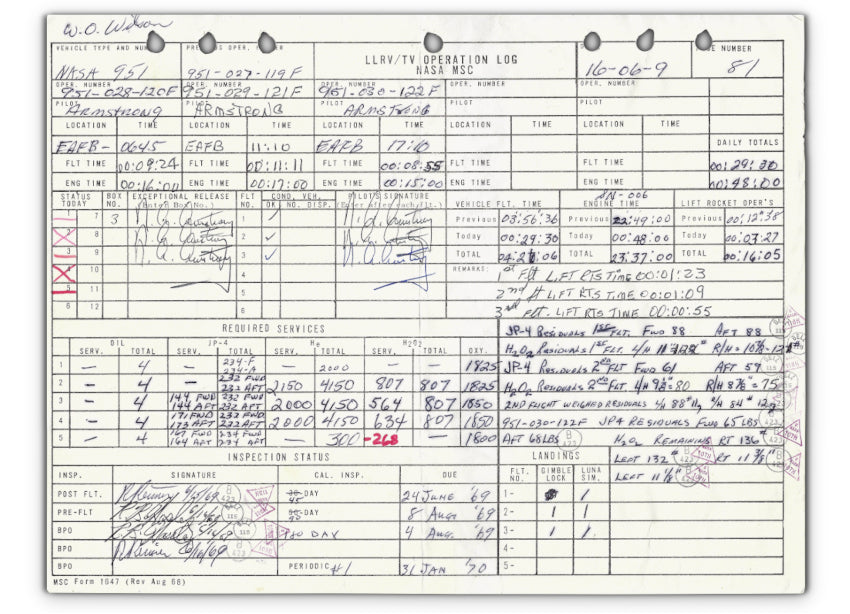 W.O. Wilson
VEHICLE TYPE AND NUM
NASA 951
951-027-119F
LLRV/TV OPERATION LOG
NASA MSC
16-06-9
E NUMBER
81
OPER. NUMBER OPER. NUMBER OPER. NUMBER OPER. NUMBER OPER. NUMBER
951-028-120F 951-029-121F 951-030-122F
PILOT PILOT PILOT PILOT PILOT
ARMSTRONG ARMSTRONG ARMSTRONG
LOCATION TIME LOCATION TIME LOCATION TIME LOCATION TIME LOCATION TIME
EAFB- 0645 EAFB 11:10 EAFB 17:10 DAILY TOTALS
FLT TIME 00:09:24 FLT TIME 00:11:11 FLT TIME 00:08:55 FLT TIME FLT TIME 00:29:30
ENG TIME 00:16:00 ENG TIME 00:17:00 ENG TIME 00:15:00 ENG TIME ENG TIME 00:48:00
STATUS TODAY BOX NO. EXCEPTIONAL RELEASE FLT NO. COND. VEH. OK NO. DISP. PILOT'S SIGNATURE
VEHICLE FLT. TIME SN-006 ENGINE TIME LIFT ROCKET OPER'S
1 7 3 1 ✓ Previous 03:56:36 Previous 22:49:00 Previous 00:12:38
2 8 2 ✓ Today 00:29:30 Today 00:48:00 Today 00:03:27
3 9 3 ✓ TOTAL 04:26:06 TOTAL 23:37:00 TOTAL 00:16:05
4 10 4 REMARKS: 1st Flt LIFT RTS TIME 00:01:23
5 11 5 2nd flt LIFT RTS TIME 00:01:09
6 12 6 3rd flt. LIFT RTS TIME 00:00:55
REQUIRED SERVICES
JP-4 RESIDUALS 1ST FLT. FWD 88 AFT 88
OIL JP-4 He H2O2
SERV. TOTAL SERV. TOTAL SERV. TOTAL SERV. TOTAL OXY.
H2O2 RESIDUALS 1ST FLT.
1 - 4 - 234-F 234-A - 2000 - - 1825
JP-4 RESIDUALS 2nd FLT FWD 61 AFT 59
2 - 4 - 232 FWD 232 AFT 2150 4150 807 807 1825
H2O2 RESIDUALS 2nd FLT. L/H 9⅜=80 R/H 8⅞"=75
3 - 4 144 FWD 144 AFT 232 FWD 232 AFT 2000 4150 564 807 1850
2ND FLIGHT WEIGHED RESIDUALS
4 - 4 171 FWD 173 AFT 232 FWD 232 AFT 2000 4150 634 807 1850
951-030-122F JP4 RESIDUALS FWD 65 LBS
5 - 4 167 FWD 164 AFT 234 FWD 234 AFT - 300 -268 - 1800
AFT 68 LBS H2O2 REMAINING RT 136#
INSPECTION STATUS
LANDINGS
LEFT 132# RT 11 ⅜"
LEFT 11 ⅛"
INSP. SIGNATURE CAL. INSP. DUE FLT. NO. GIMBLE LOCK LUNA SIM.
POST FLT. -DAY 24 JUNE '69 1-
PRE-FLT -DAY 8 Aug. '69 2-
BPO 180 DAY 4 Aug. '69 3-
BPO 4-
BPO PERIODIC #1 31 JAN '70 5-
MSC Form 1647 (Rev Aug 66)